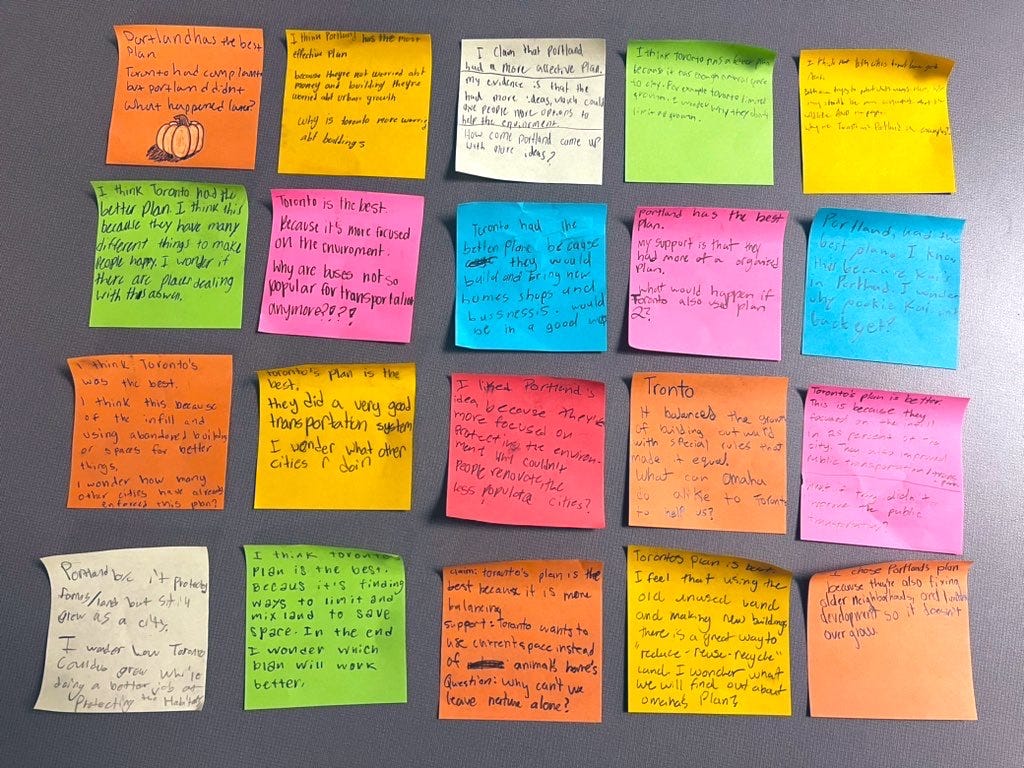 Portland has the best
Plan
Toronto had complaints
but portland didnt
What happened later?
I think Portland has the most
effective Plan
because theyre not worried abt
money and building they're
worried abt urban growth
Why is toronto more worried
abt buildings
I claim that Portland
had a more affective plan.
my evidence is that the
had more ideas, which could
give people more options to
help the environment
How come portland come up
with more ideas?
I think Toronto has a better plan
because it has enough
to city. For example toronto limited
growth. I wonder why they don't
I think both cities
Toronto Portland
I think Toronto had the
better Plan. I think this
because they have many
different things to make
People happy. I wonder if
there are places dealing
with this as well.
Toronto is the best.
Because it's more focused
on the enviroment.
Why are buses not so
popular for transportation
anymore????
Toronto had the
better plane because
they would
build and bring new
homes shops and
bussness's. would
be in a good
portland has the best
plan.
my support is that they
had more of a organised
plan.
what would happen if
Toronto also used plan
2?
Portland, had the
best plan. I know
this because Kai is
in Portland. I wonder
why pookie Kai isnt
back yet?
I think Toronto's
was the best.
I think this because
of the infill and
using abandoned building
or spaces for better
things.
I wonder how many
other cities have already
enforced this plan?
toronto's plan is the
best.
they did a very good
transportation system
I wonder what other
cities r doin?
I liked Portland's
idea because they're
more focused on
Protecting the environ-
ment Why couldn't
People renovate the
less populated cities?
Tronto
It balances the growth
of building outward
with special rules that
made it equal.
What can omaha
do alike to Toronto
to help us?
Toronto's plan is better.
This is because they
focused on the infill
in 25 percent of the
city. They also improved
public transportation
What if they didn't
improve the public
transportation?
Portland b/c it Protects
farms/land but still
grew as a city.
I wonder how Toronto
Could grow while
doing a better job at
Protecting the Habitats
I think toronto
Plan is the best.
Becaus it's finding
ways to limit and
mix land to save
space. In the end
I wonder which
plan will work
better.
Claim: toronto's plan is the
best because it is more
balancing
support: Toronto wants to
use current space instead
of animals home's
Question: why can't we
leave nature alone?
Toronto's Plan is best.
I feel that using the
old unused land
and making new buildings
there is a great way to
"reduce-reuse-recycle"
land. I wonder what
we will find out about
omaha's Plan?
I chose Portland's plan
because they're also fixing
older neighborhoods, and limiting
development so it doesn't
over grow.